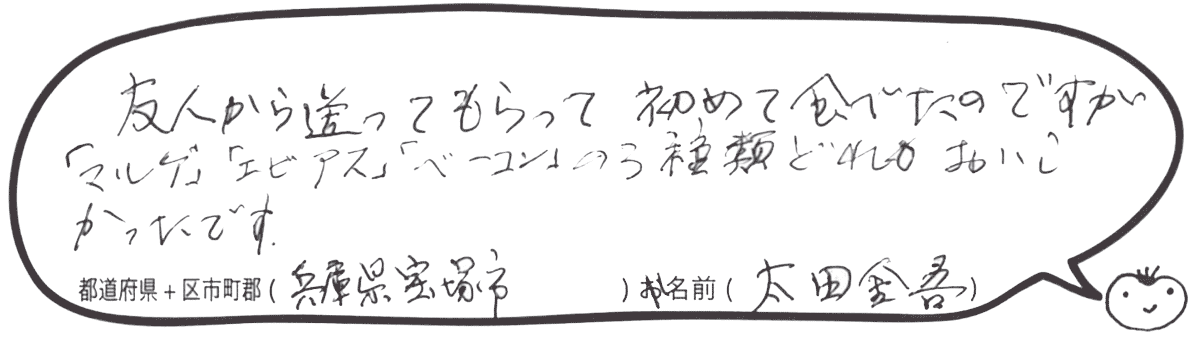 友人から送ってもらって 初めて食べたのですが
「マルゲ」「エビアス」「ベーコン」の3種類どれもおいし
かったです。
都道府県+区市町郡(兵庫県宝塚市 )お名前(太田金吾)